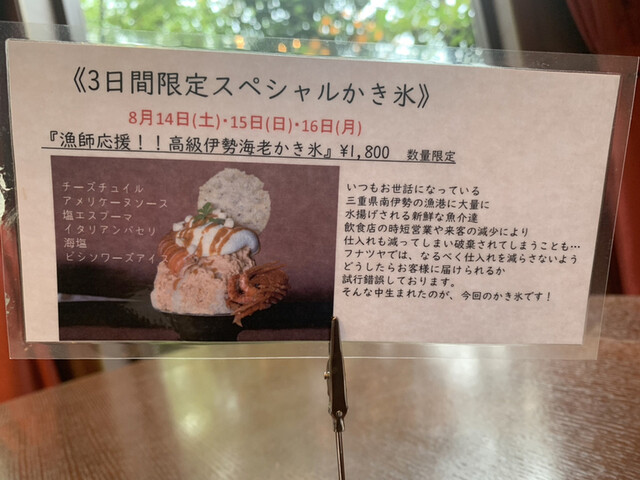 《3日間限定スペシャルかき氷》
8月14日(土)・15日(日)・16日(月)
『漁師応援！！高級伊勢海老かき氷』¥1,800 数量限定
チーズチュイル
アメリケーヌソース
塩エスプーマ
イタリアンパセリ
海塩
ビシソワーズアイス
いつもお世話になっている
三重県南伊勢の漁港に大量に
水揚げされる新鮮な魚介達
飲食店の時短営業や来客の減少により
仕入れも減ってしまい破棄されてしまうことも…
フナツヤでは、なるべく仕入れを減らさないよう
どうしたらお客様に届けられるか
試行錯誤しております。
そんな中生まれたのが、今回のかき氷です！